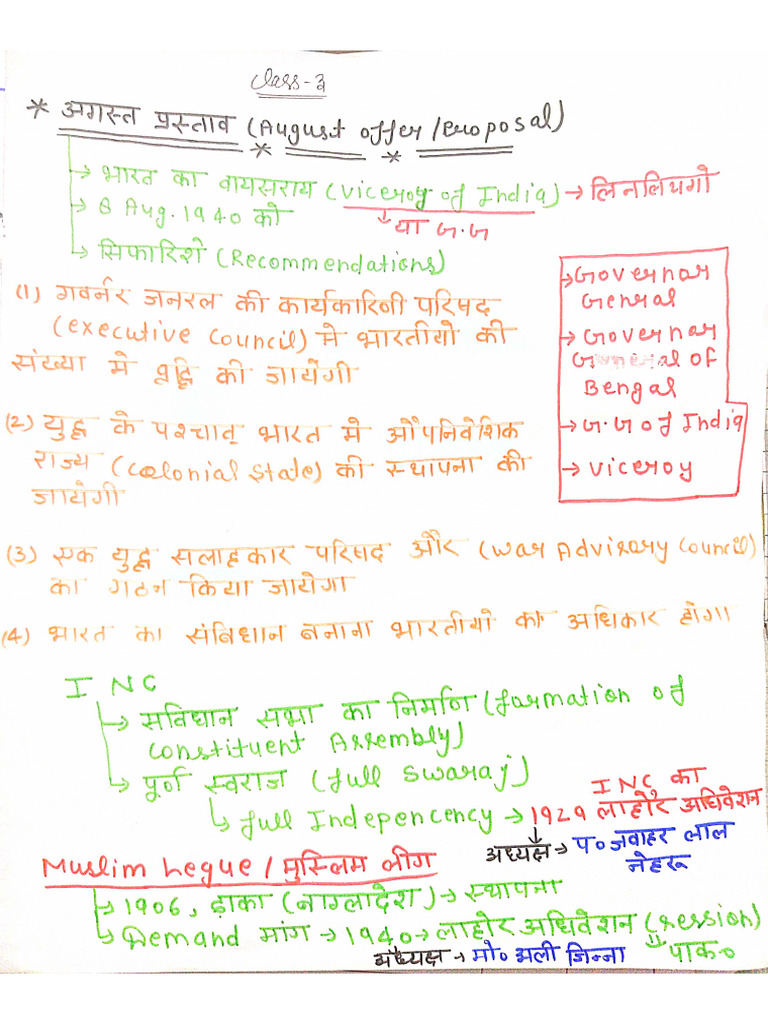 Class-3
* अगस्त प्रस्ताव (August offer/Proposal)
* *
→ भारत का वायसराय (Viceroy of India) → लिनलियगो
→ 8 Aug. 1940 को
↓ या G.G
→ सिफारिशे (Recommendations)
(1) गवर्नर जनरल की कार्यकारिनी परिषद
(executive Council) मे भारतीयो की
संख्या मे वृद्धि की जायेगी
(2) युद्ध के पश्चात् भारत मे औपनिवेशिक
राज्य (Colonial State) की स्थापना की
जायेगी
→ Governar
Genral
→ Governar
General of
Bengal
→ G.G of India
→ Viceroy
(3) एक युद्ध सलाहकार परिषद और (War Advisary Council)
का गठन किया जायेगा
(4) भारत का संबिधान बनाना भारतीयो का अधिकार होगा
INC
→ सविधान सभा का निर्माण (formation of
Constituent Assembly)
→ पूर्ण स्वराज (full Swaraj)
↳ full Indepencency → 1929 लाहोर अधिवेशन
INC का
अध्यक्ष → प० जवाहर लाल
नेहरू
Muslim Legue / मुस्लिम लीग
→ 1906, ढ़ाका (बाग्लादेश) → स्थापना
→ Demand मांग → 1940 → लाहोर अधिवेशन (Session)
↓ पाक०
अध्यक्ष → मो० अली जिन्ना